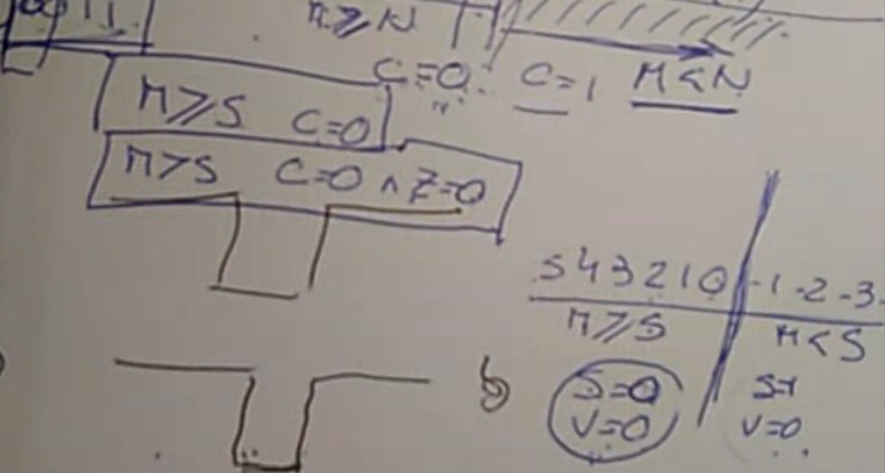 M ≥ N
C=0 C=1 M < N
M ≥ S C=0
M > S C=0 ∧ Z=0
5 4 3 2 1 0 -1 -2 -3
M ≥ S M < S
S=0 S=1
V=0 V=0